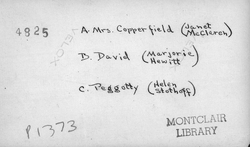 4825
A. Mrs. Copperfield (Janet McCleron)
B. David (Marjorie Hewitt)
C. Peggotty (Helen Stothoff)
P1373
MONTCLAIR
LIBRARY